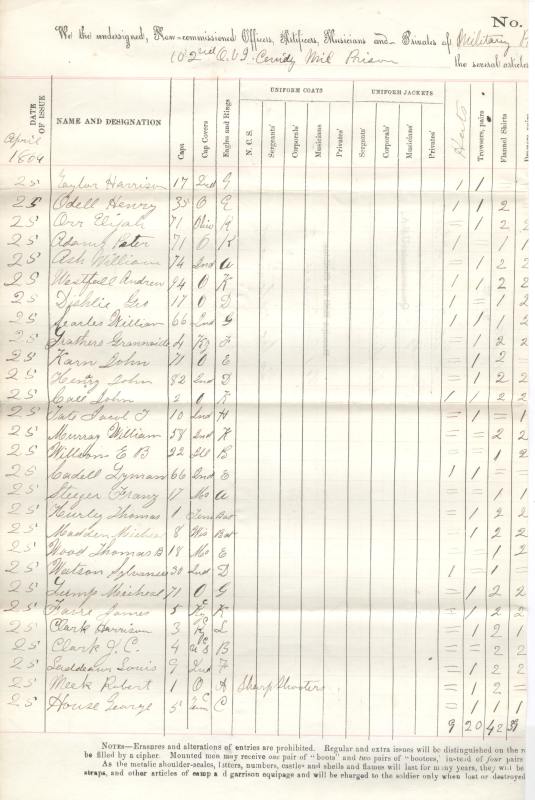 No.
We the undersigned, Non-commissioned Officers, Artificers, Musicians and Privates of Military
102nd O.V.I. Mil Prison the several articles
DATE OF ISSUE NAME AND DESIGNATION Caps Cap Covers Eagles and Rings UNIFORM COATS N. C. S. Sergeants' Corporals' Musicians Privates' UNIFORM JACKETS Sergeants' Corporals' Musicians' Privates' Hats Trowsers, pairs Flannel Shirts
April
1864
25 Taylor Harrison 17 Ind G 1 1 =
25 Odell Henry 35 O G 1 1 2
25 Orr Elijah 71 Ohio K = 1 2 2
25 Adamy Peter 71 O K 1 = 1 1
25 Ash William 74 Ind A = 1 2 2
25 Westfall Andrew 94 O K 1 1 2 2
25 Geo 17 O D 1 = 1 2
25 Searles William 66 Ind G 1 1 1 2
25 4 Ky F = 1 2 2
25 Karn John 71 O E = 1 2
25 Henry John 82 Ind D = 1 2 2
25 Call John 2 O K 1 1 2 2
25 Tate Jacob T 10 Ind H = 1 = 1
25 Murray William 58 Ind K = = 2 2
25 Williams E B 22 Ill B = = 1 2
25 Cadell Lyman 66 Ind E 1 1 = =
25 Steeger Franz 17 Mo A = = 1 1
25 Hurley Thomas 1 Tenn Bat = 1 2 2
25 Madden Michael 8 Wis Bat = 1 2 2
25 Wood Thomas B 18 Mo E = = 1 2
25 Watson Sylvanus 30 Ind D 1 = 1 =
25 Gump Micheal 71 O G = 1 2 2
25 James 5 Ky C K = 1 2 2
25 Clark Harrison 3 Ky C L = 1 2 1
25 Clark J. C. 4 U S B = = 2 2
25 Louis 9 Ind F = 1 2 2
25 Meek Robert 1 O A Sharp Shooters = 1 2 =
25 House George 5 C C = 1 1 1
9 20 42 39
NOTES—Erasures and alterations of entries are prohibited. Regular and extra issues will be distinguished on the
be filled by a cipher. Mounted men may receive one pair of "boots" and two pairs of "bootees," instead of four pairs
As the metalic shoulder-scales, letters, numbers, castles and shells and flames will last for many years, they will be
straps, and other articles of camp and garrison equipage and will be charged to the soldier only when lost or destroyed